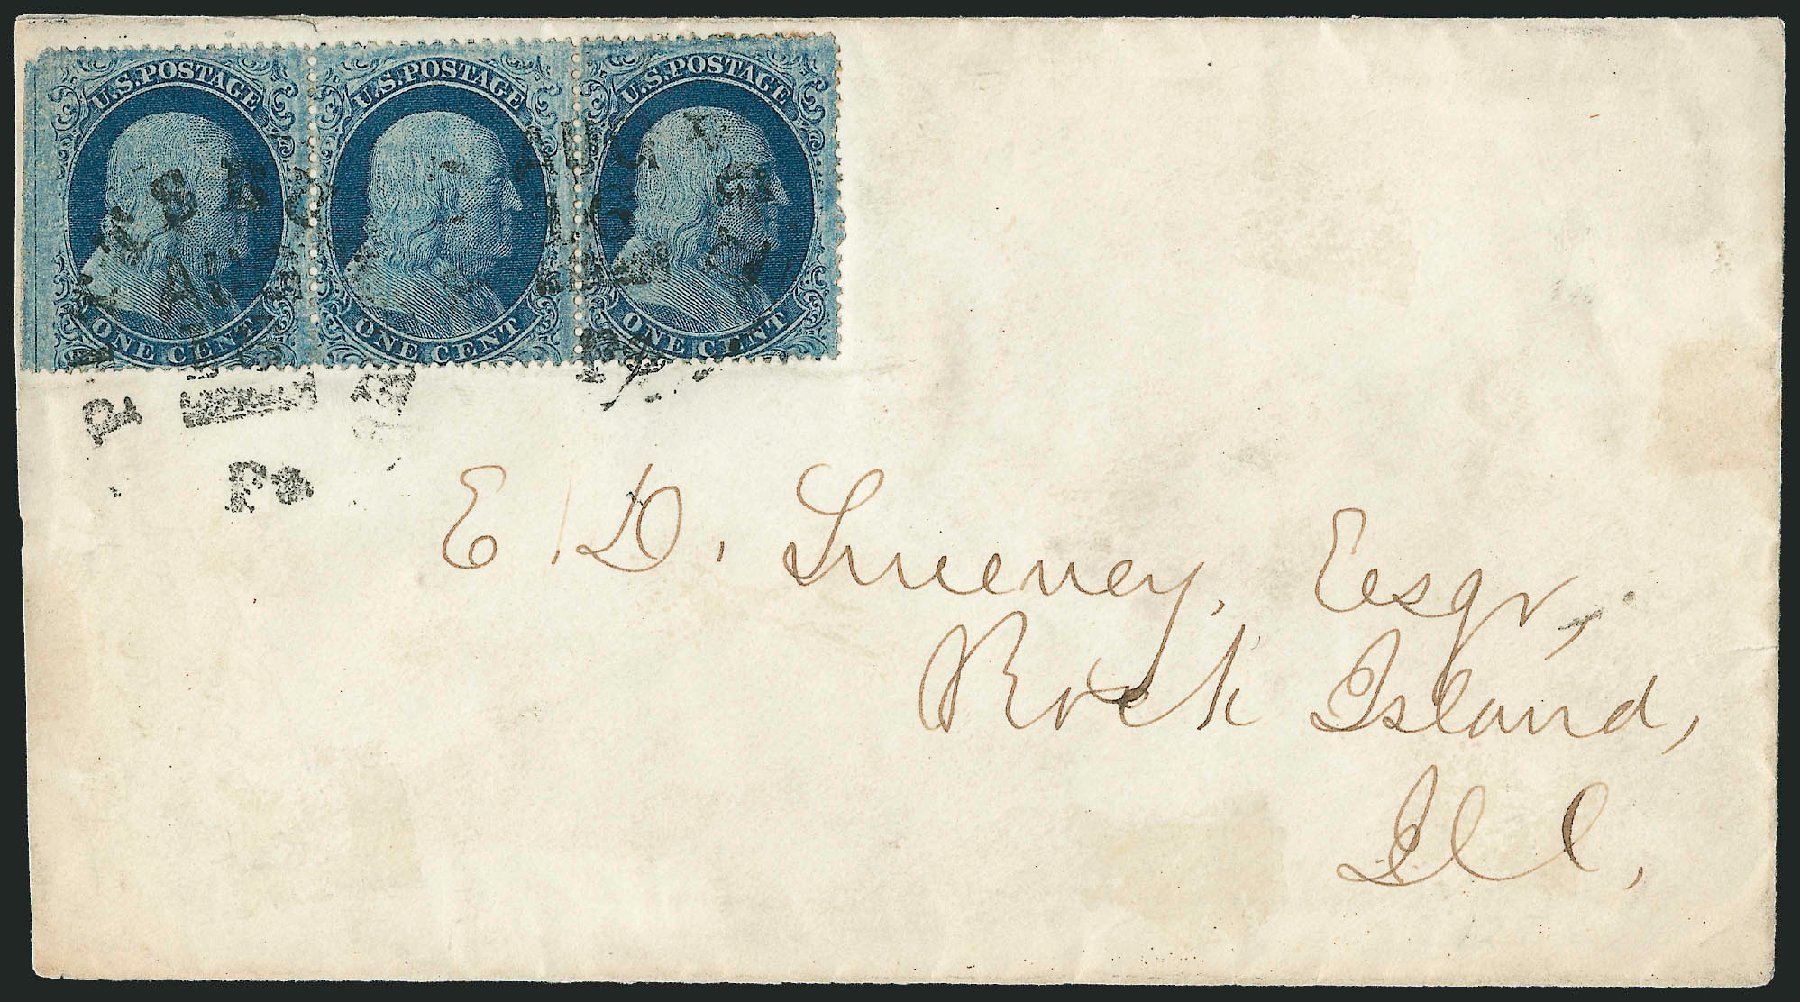 U.S. POSTAGE U.S. POSTAGE U.S. POSTAGE
ONE CENT ONE CENT ONE CENT
E. D. Sweeney, Esqr,
Rock Island,
Ill,